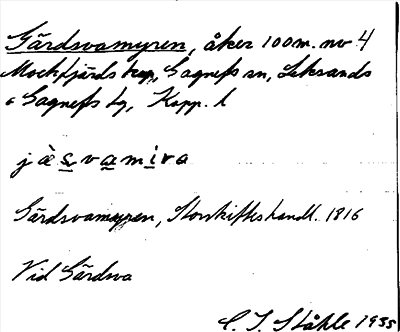 Gärdsvamyren, åker 100m. nv 4
Mockfjärds kap., Gagnefs sn, Leksands
o Gagnefs tg, Kopp. l
jàs̲væ̲mi̲ra
Gärdsvamyren, Storskifteshandl. 1816
Vid Gärdsva
C. I. Ståhle 1935